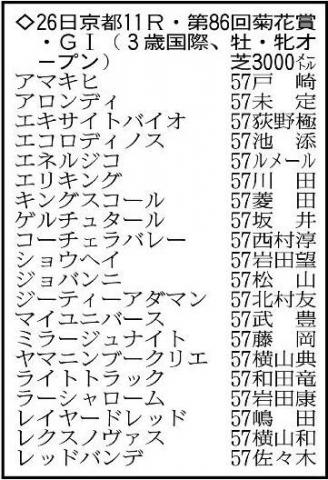 ◇26日京都11R・第86回菊花賞
・GⅠ(3歳国際、牡・牝オ
ープン) 芝3000メートル
アマキヒ 57戸崎
アロンディ 57未定
エキサイトバイオ 57荻野極
エコロディノス 57池添
エネルジコ 57ルメール
エリキング 57川田
キングスコール 57菱田
ゲルチュタール 57坂井
コーチェラバレー 57西村淳
ショウヘイ 57岩田望
ジョバンニ 57松山
ジーティーアダマン 57北村友
マイユニバース 57武豊
ミラージュナイト 57藤岡
ヤマニンブークリエ 57横山典
ライトトラック 57和田竜
ラーシャローム 57岩田康
レイヤードレッド 57嶋田
レクスノヴァス 57横山和
レッドバンデ 57佐々木